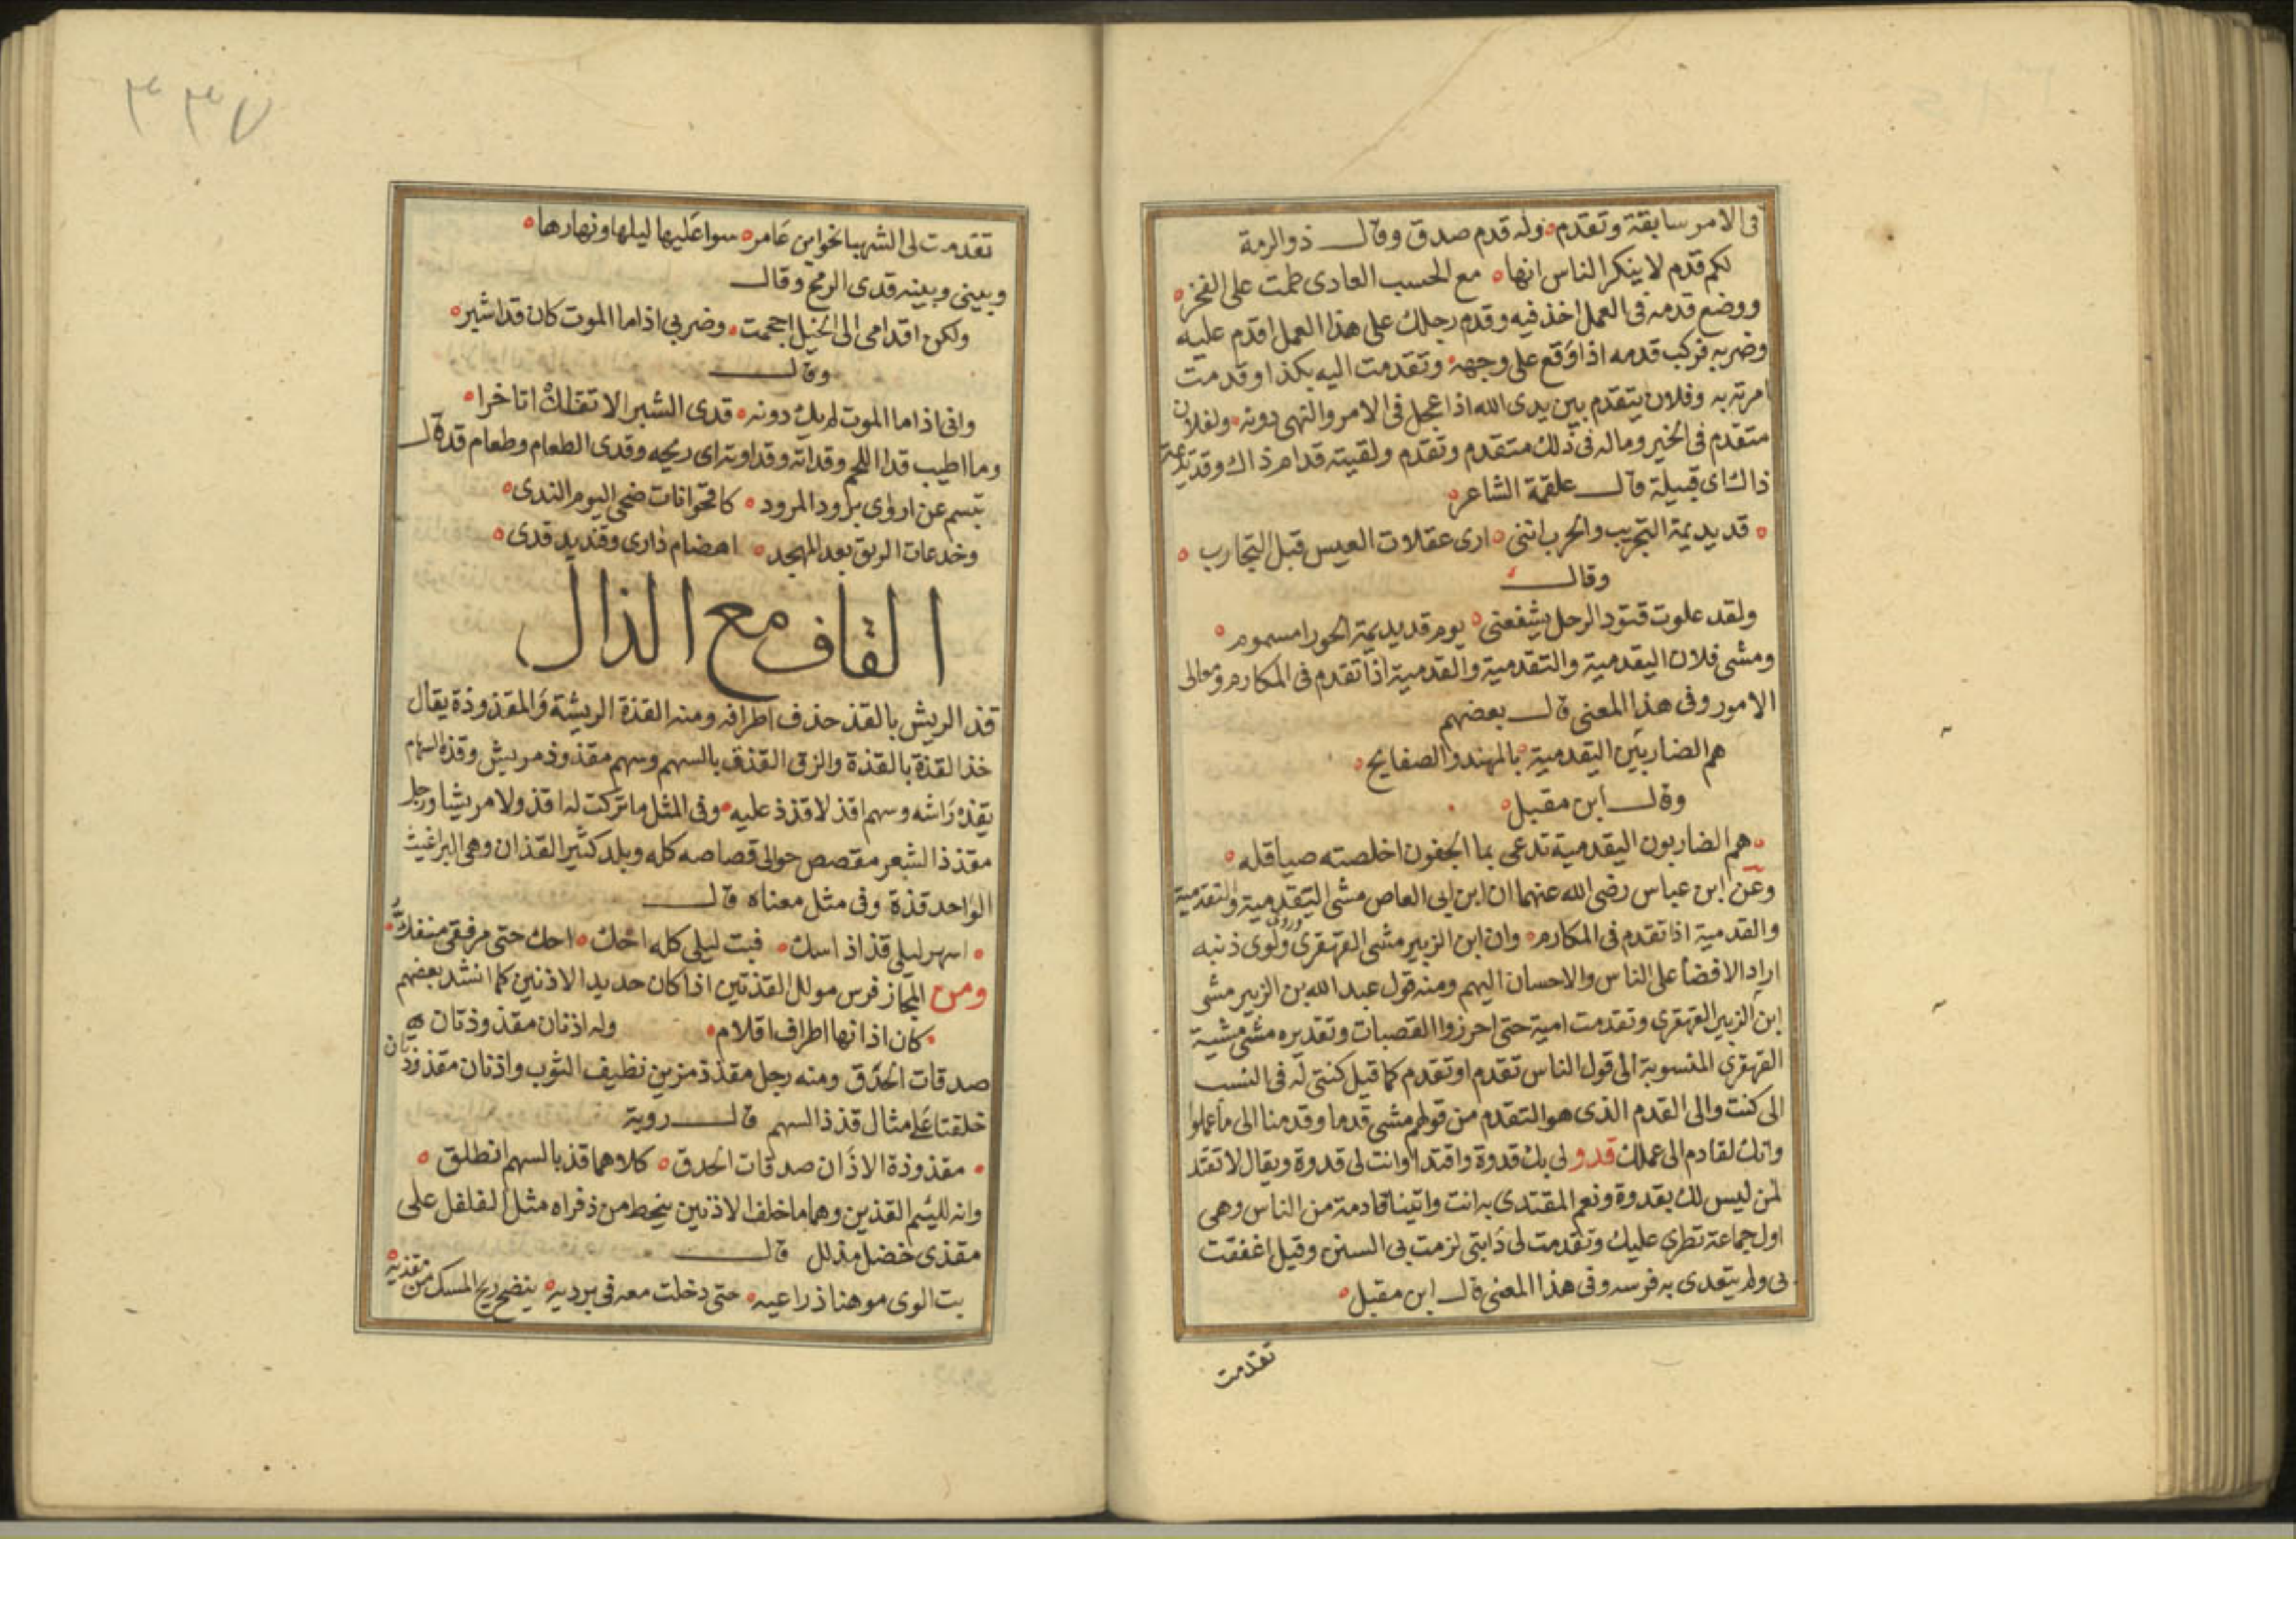 في الامر سابقة وتقدم وله قدم صدق وقال ذو الرمة
لكم قدم لا ينكر الناس انها مع الحسب العادى طمت على الفخر
ووضع قدمه في العمل اخذ فيه وقدم رجلك على هذا العمل اقدم عليه
وضربه فركب قدمه اذا وقع على وجهه وتقدمت اليه بكذا وقدمت
امرته به وفلان يتقدم بين يدى الله اذا عجل في الامر والنهى دونه ولفلان
متقدم في الخير وماله في ذلك متقدم وتقدم ولقيته قدام ذاك وقديديمة
ذاك اى قبيلة قال علقمة الشاعر
قديديمة التجريب والحرب اتنى ارى عقلات العيس قبل التجارب
وقال
ولقد علوت قتود الرحل يشفعنى يوم قديديمة الحورا مسموم
ومشى فلان اليقدمية والتقدمية والقدمية اذا تقدم في المكارم ومعالى
الامور وفى هذا المعنى قال بعضهم
هم الضاربين اليقدمية بالمهند والصفايح
وقال ابن مقبل
هم الضاربون اليقدمية تدعى بما الجفون اخلصته صياقله
وعن ابن عباس رضى الله عنهما ان ابن ابى العاص مشى اليقدمية والتقدمية
والقدمية اذا تقدم في المكارم وان ابن الزبير مشى القهقرى وروى ولوى ذنبه
اراد الافضا على الناس والاحسان اليهم ومنه قول عبد الله بن الزبير مشى
ابن الزبير القهقرى وتقدمت امية حتى احرزوا القصبات وتقديره مشى مشية
القهقرى المنسوبة الى قول الناس تقدم او تقدم كما قيل كنتى له في النسب
الى كنت والى القدم الذى هو التقدم من قولهم مشى قدما وقدمنا الى ما عملوا
وانك لقادم الى عملك قدو لى بك قدوة واقتدا وانت لى قدوة ويقال لا تقتد
لمن ليس لك بقدوة ونعم المقتدى به انت واتينا قادمة من الناس وهى
اول جماعة تطرى عليك وتقدمت لى دابتى لزمت بى السنن وقيل اغفقت
بى ولم يتعدى به فرسه وفى هذا المعنى قال ابن مقبل
تقدمت
٣٣٧
تقدمت لى الشهبا نحو ابن عامر سوا عليها ليلها ونهارها
وبينى وبينه قدى الرمح وقال
ولكن اقدامى الى الخيل احجمت وضربى اذا ما الموت كان قدا شبر
وقال
وانى اذا ما الموت لم يك دونه قدى الشبر لا تنفك اتاخرا
وما اطيب قدا اللحم وقداته وقداوته اى ريحه وقدى الطعام وطعام قد قال
تبسم عن اروى برود المرود كاقحوانات ضحى اليوم الندى
وخدعات الريق بعد المهجد اهضام دارى وقنديد قدى
القاف مع الذال
قذ الريش بالقذ حذف اطرافه ومنه القذة الريشة والمقذوذة يقال
خذا لقذة بالقذة والزق القذف بالسهم وسهم مقذوذ مريش وقذ السهام
يقذه راشه وسهم اقذ لا قذذ عليه وفى المثل ما تركت له اقذ ولا مريشا ورجل
مقذذ الشعر مقصص حوالى قصاصه كله وبلد كثير القذان وهى البراغيث
الواحد قذة وفى مثل معناه قال
اسهر ليلى قذاذ اسك فبت ليلى كله احك احك حتى مرفقى منفك
ومن المجاز فرس مولل القذتين اذا كان حديد الاذنين كما انشد بعضهم
كان اذانها اطراف اقلام وله اذنان مقذوذتان
صدقات الحدق ومنه رجل مقذذ مزين نظيف الثوب واذنان مقذوذتان
خلقتا على مثال قذذ السهم قال روبة
مقذوذة الاذان صدقات الحدق كلاهما قذ بالسهم انطلق
وانه للئيم القذين وهما ما خلف الاذنين ينحط من ذفراه مثل الفلفل على
مقذى خضل مذلل قال
بت الوى موهنا ذراعيه حتى دخلت معه في برديه ينضح ريح المسك من مقذيه